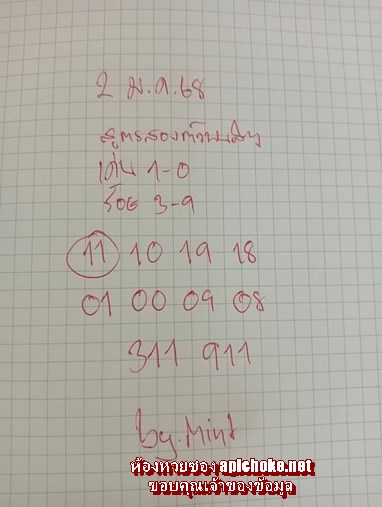 2 ม.ค.68
สูตรสองตัว
เด่น 1-0
ร้อย 3-9
11 10 19 18
01 00 09 08
311 911
by.Mint
ห้องหวยซอง apichoke.net
ขอบคุณเจ้าของข้อมูล